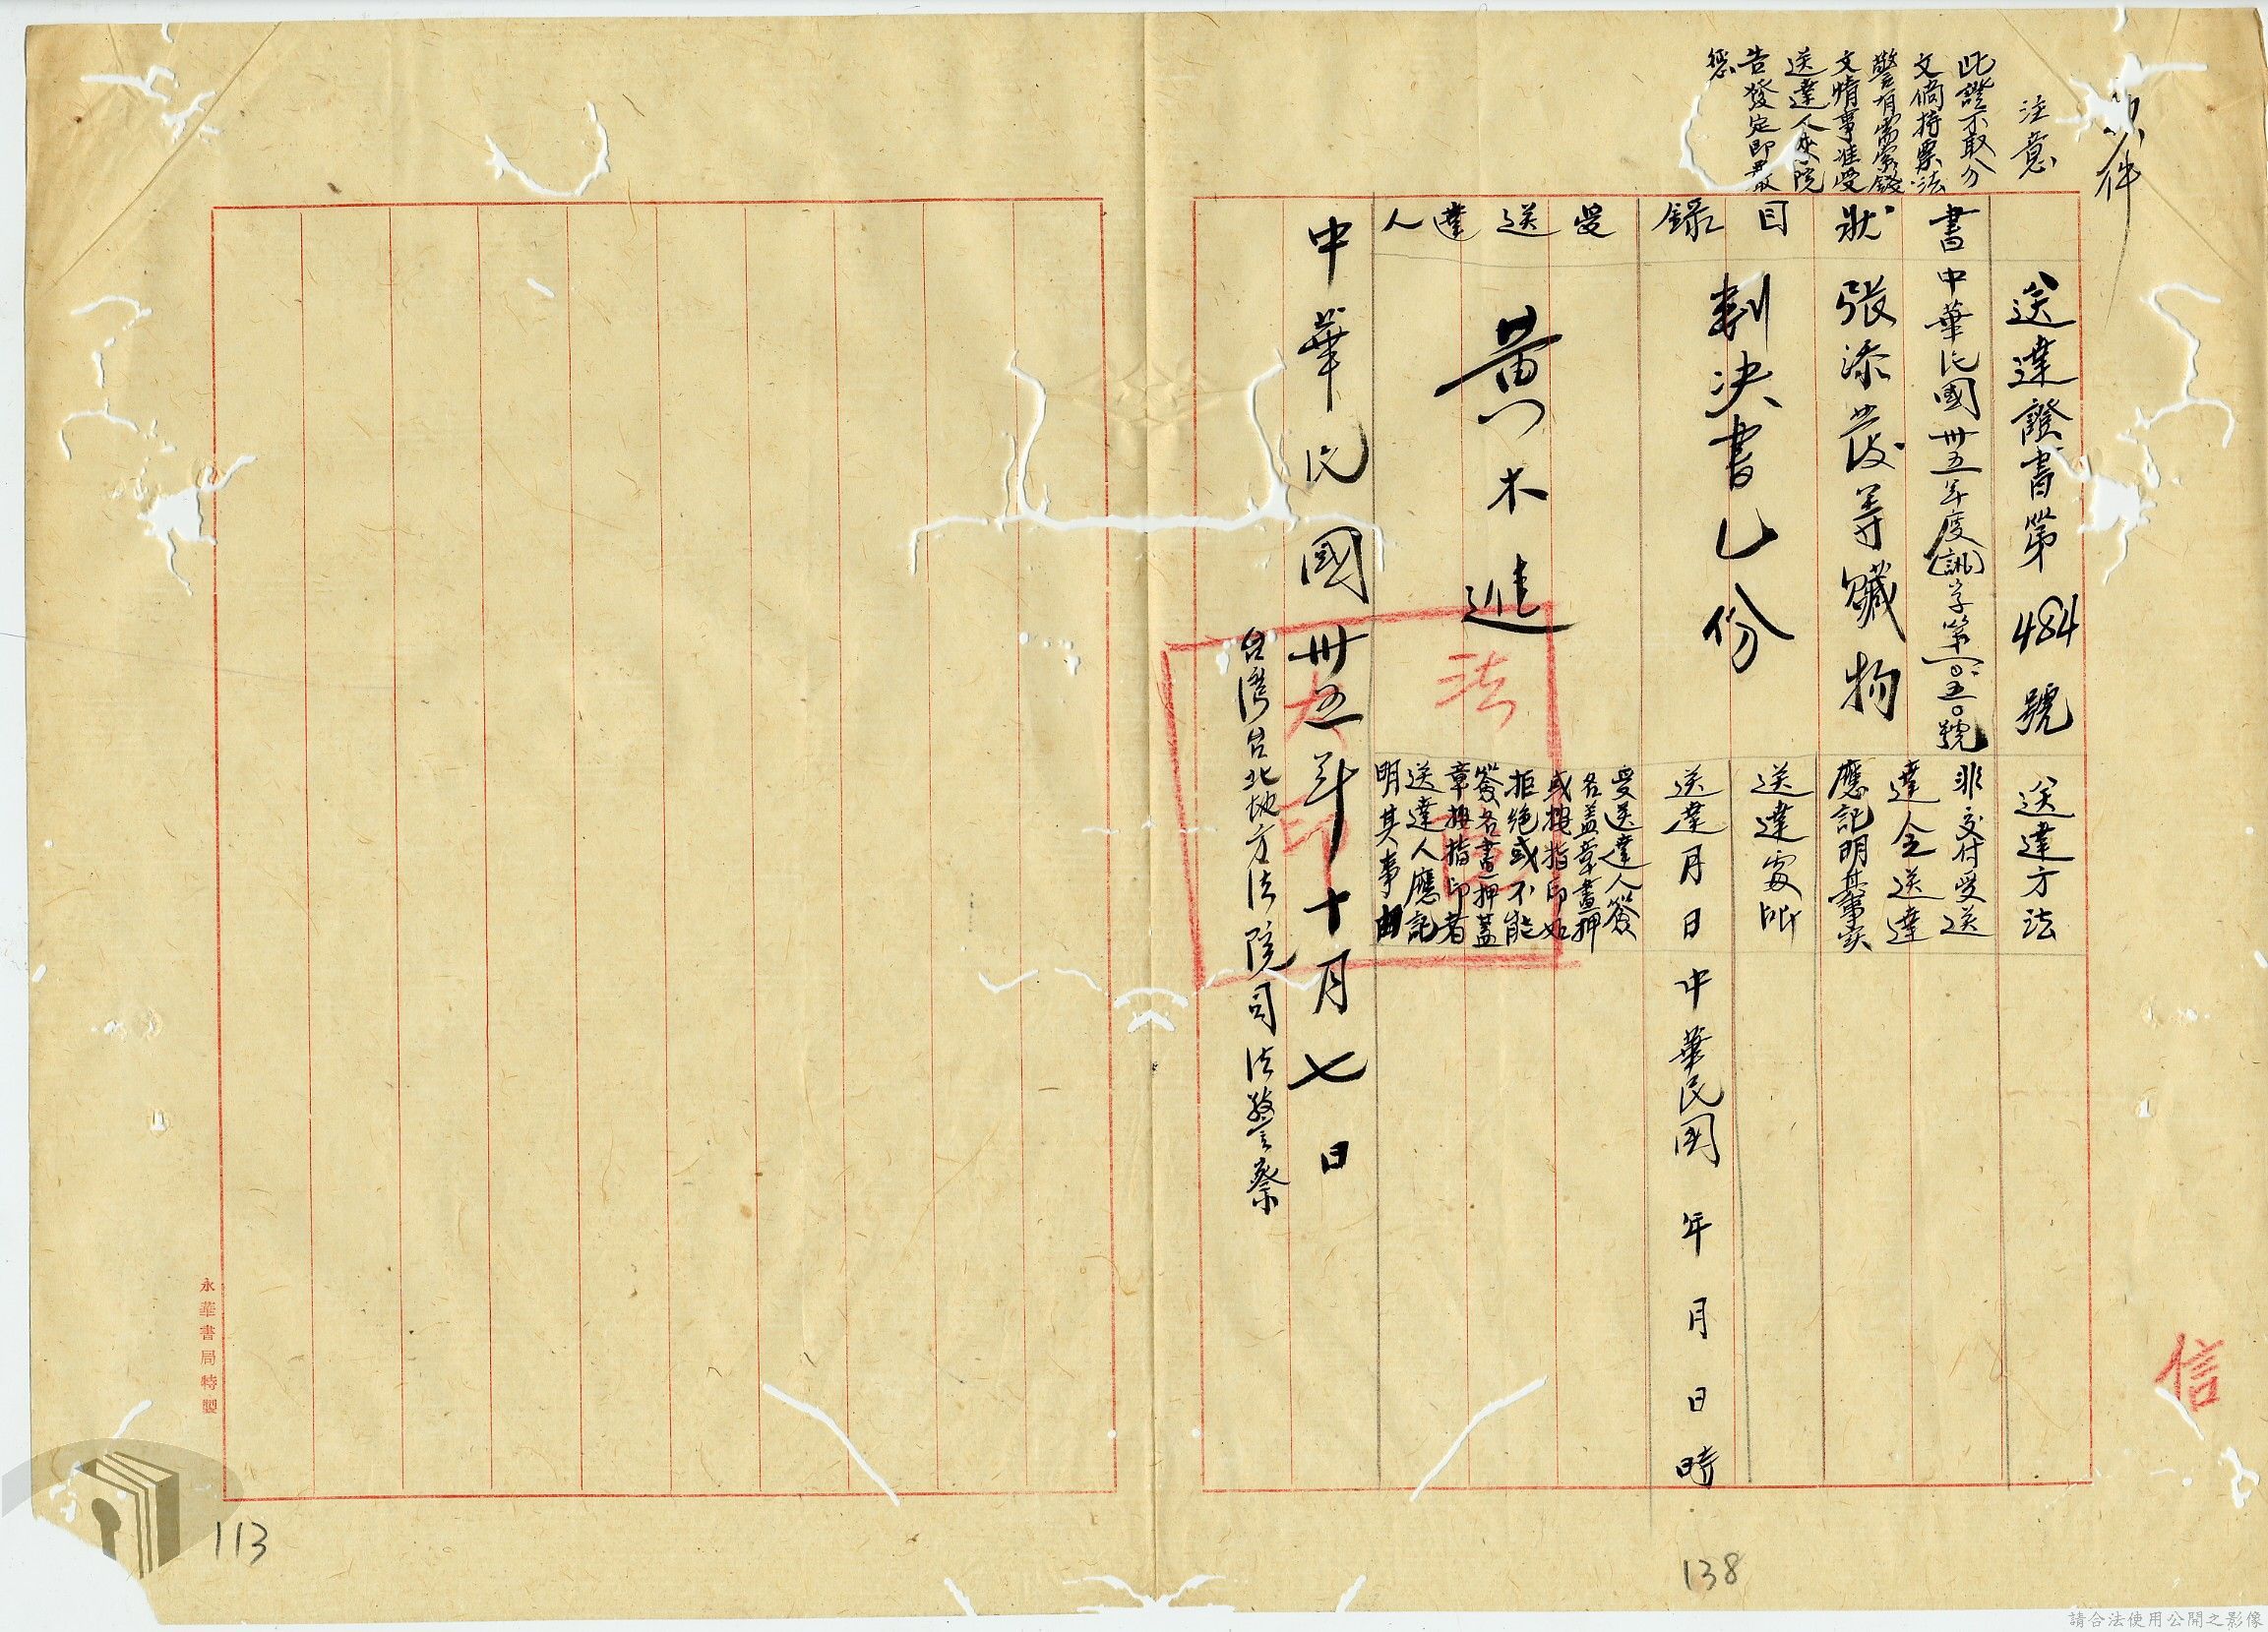 件
注意
此證不取分
文倘持票法
警有需索錢
文情事准受
送達人來院
告發定即嚴
懲
送達證書第484號
送達方法
書
中華民國卅五年度(訊)字第一〇五〇號
非交付受送
達人之送達
應記明其事實
狀
張添發等贓物
目錄
判決書乙份
送達處所
送達月日
中華民國 年 月 日 時
受送達人
黃木進
受送達人簽
名蓋章畫押
或按指印如
拒絕或不能
簽名畫押蓋
章按指印者
送達人應記
明其事由
中華民國卅五年十月七日
台灣台北地方法院司法警察
法
大印
信
永華書局特製
113
138
請合法使用公開之影像